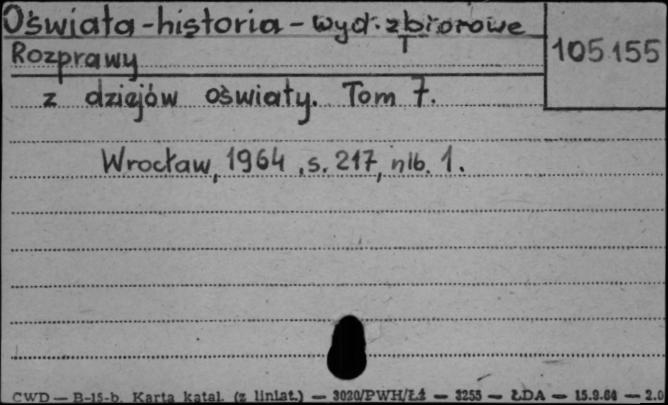 Oświata - historia - wyd. zbiorowe
T
105155
Rozprawy
z dziejów oświaty. Tom 7.
Wrocław, 1964, s. 217, nlb. 1.
CWD — B-15-b. Karta katal. (z liniat.) — 3020/PWH/Łż — 3255 — ŁDA — 15.9.64 — 2.0